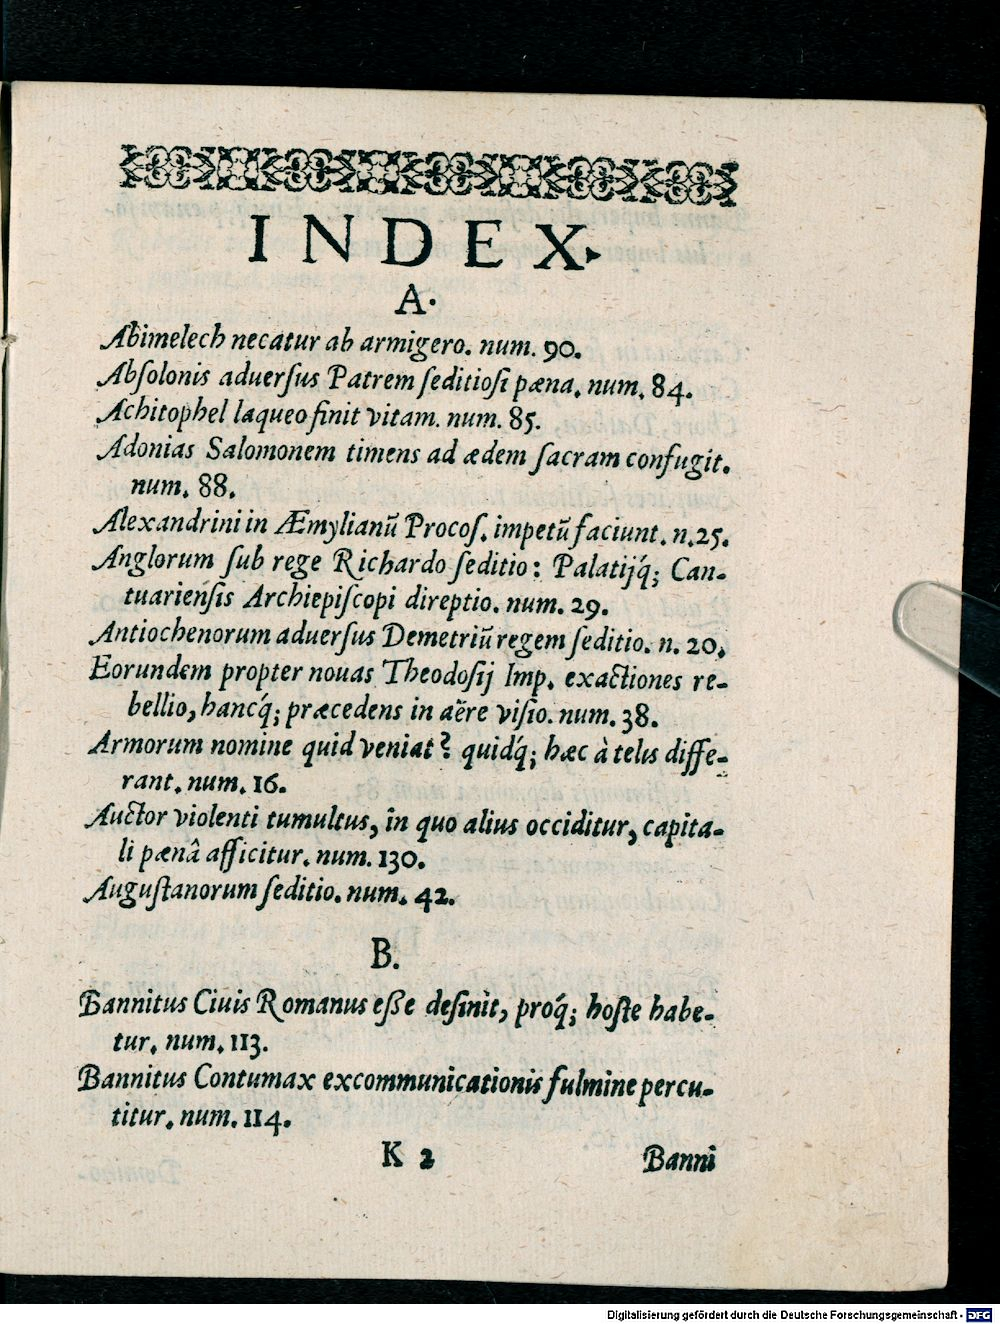 INDEX.
A.
Abimelech necatur ab armigero. num. 90.
Abſolonis aduerſus Patrem ſeditioſi pæna. num. 84.
Achitophel laqueo finit vitam. num. 85.
Adonias Salomonem timens ad ædem ſacram confugit.
num. 88.
Alexandrini in Æmylianũ Procoſ. impetũ faciunt. n. 25.
Anglorum ſub rege Richardo ſeditio: Palatijq́; Can-
tuarienſis Archiepiſcopi direptio. num. 29.
Antiochenorum aduerſus Demetriũ regem ſeditio. n. 20.
Eorundem propter nouas Theodoſij Imp. exactiones re-
bellio, hancq́; præcedens in aëre viſio. num. 38.
Armorum nomine quid veniat? quidq́; hæc à telis diffe-
rant. num. 16.
Auctor violenti tumultus, in quo alius occiditur, capita-
li pænâ afficitur. num. 130.
Auguſtanorum ſeditio. num. 42.
B.
Bannitus Ciuis Romanus eſſe deſinit, proq́; hoſte habe-
tur. num. 113.
Bannitus Contumax excommunicationis fulmine percu-
titur. num. 114.
K 2
Banni
Digitalisierung gefördert durch die Deutsche Forschungsgemeinschaft - DFG